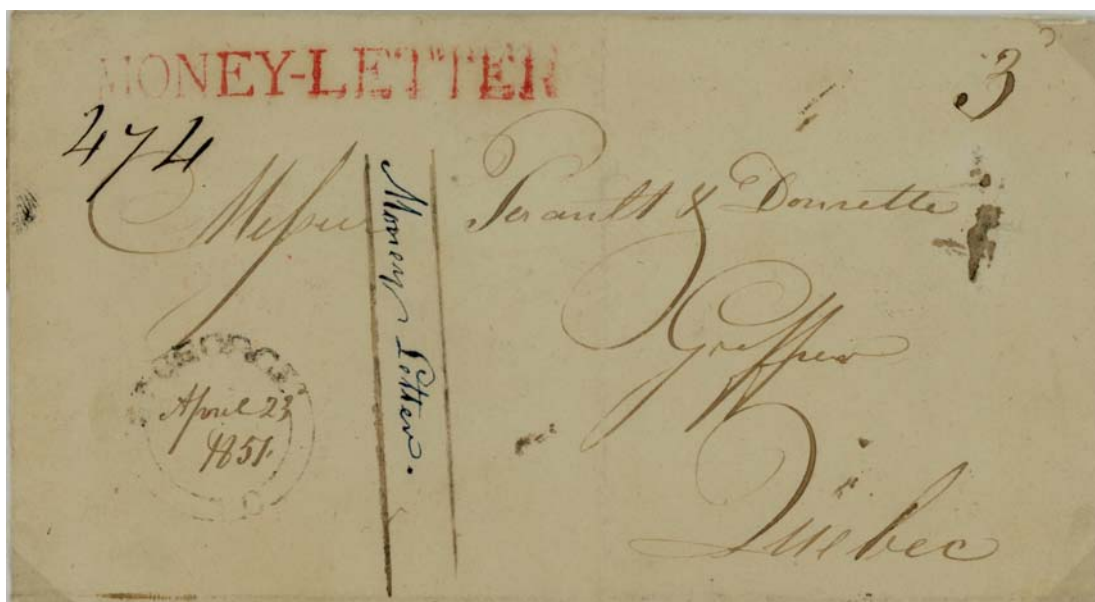 MONEY-LETTER
3
474
Messrs Perault & Doucette
Money Letter.
Greffier
Québec
April 23
1851